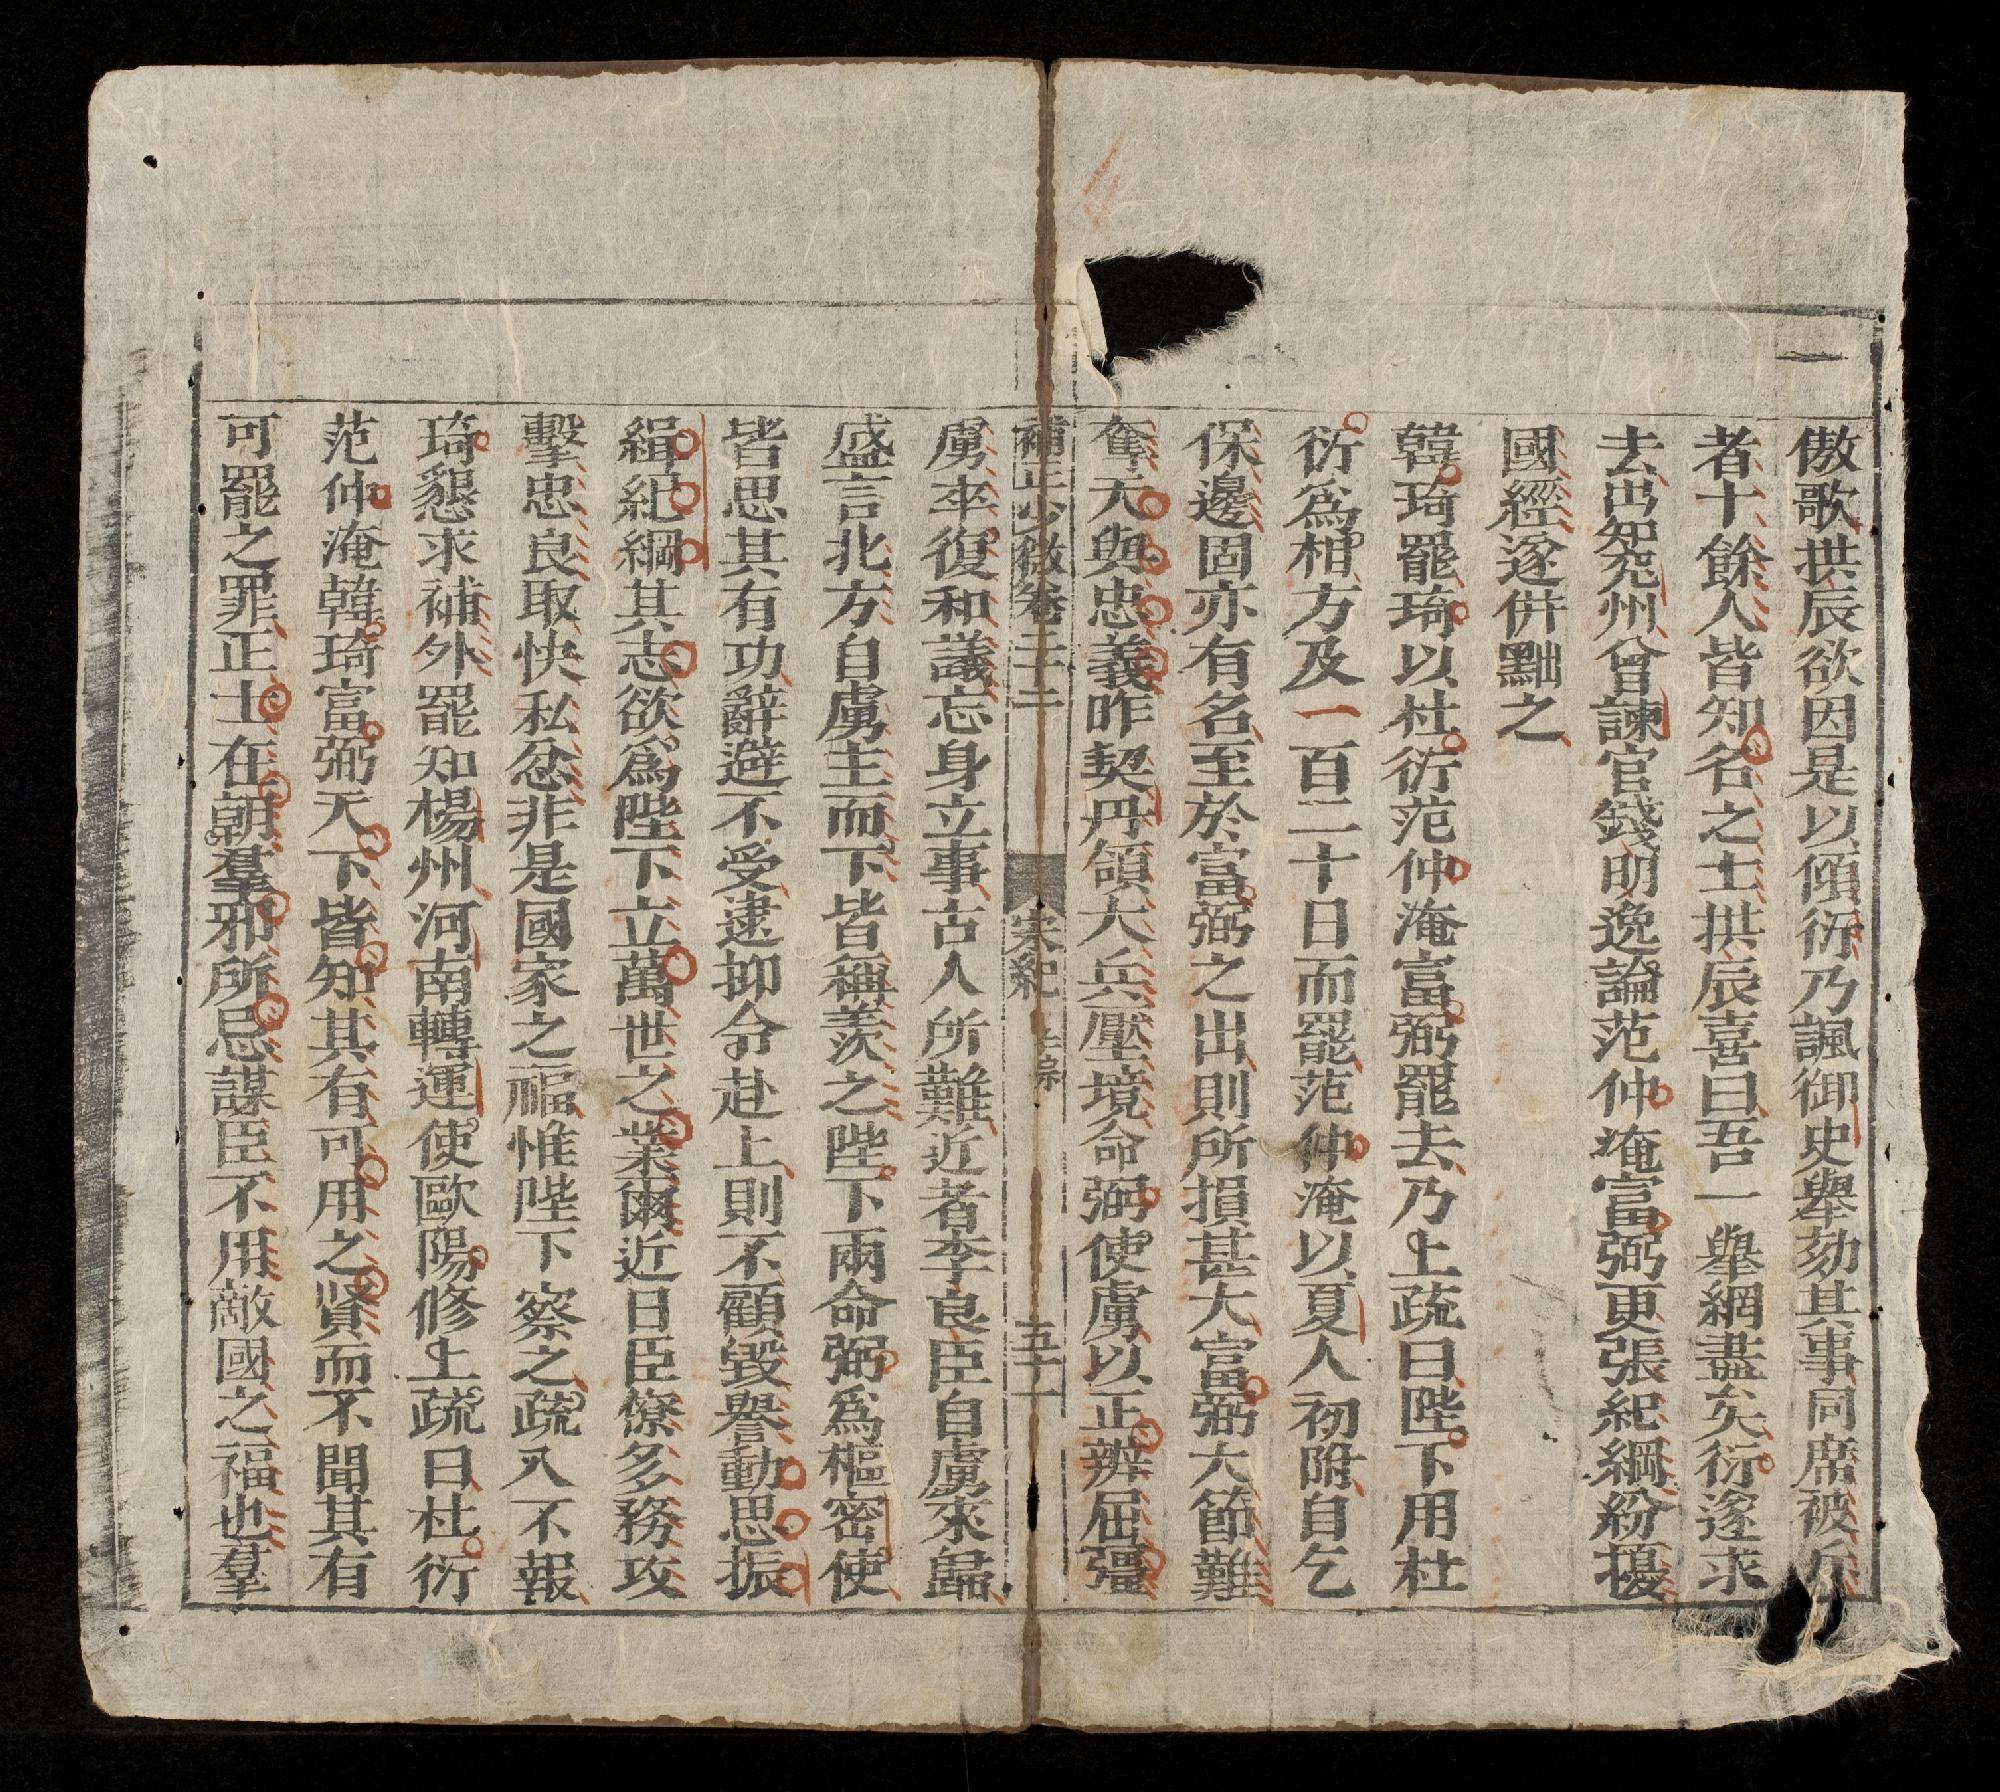 傲歌拱辰欲因是以傾衍乃諷御史舉劾其事同席被斥
者十餘人皆知名之士拱辰喜曰吾一舉網盡矣衍遂求
去出知兖州曾諫官錢明逸論范仲淹富弼更張紀綱紛擾
國經遂併黜之
韓琦罷琦以杜衍范仲淹富弼罷去乃上疏曰陛下用杜
衍爲相方及一百二十日而罷范仲淹以夏人初附自乞
保邊固亦有名至於富弼之出則所損甚大富弼大節難
奪天與忠義昨契丹領大兵壓境命弼使虜以正辨屈彊
補正少微卷二十二 宋紀 仁宗 五十一
虜卒復和議忘身立事古人所難近者李良臣自虜來歸
盛言北方自虜主而下皆稱羨之陛下兩命弼爲樞密使
皆思其有功辭避不受逮抑令赴上則不顧毀譽動思振
緝紀綱其志欲爲陛下立萬世之業爾近日臣僚多務攻
擊忠良取快私忿非是國家之福惟陛下察之疏入不報
琦懇求補外罷知楊州河南轉運使歐陽修上疏曰杜衍
范仲淹韓琦富弼天下皆知其有可用之賢而不聞其有
可罷之罪正士在朝羣邪所忌謀臣不用敵國之福也羣